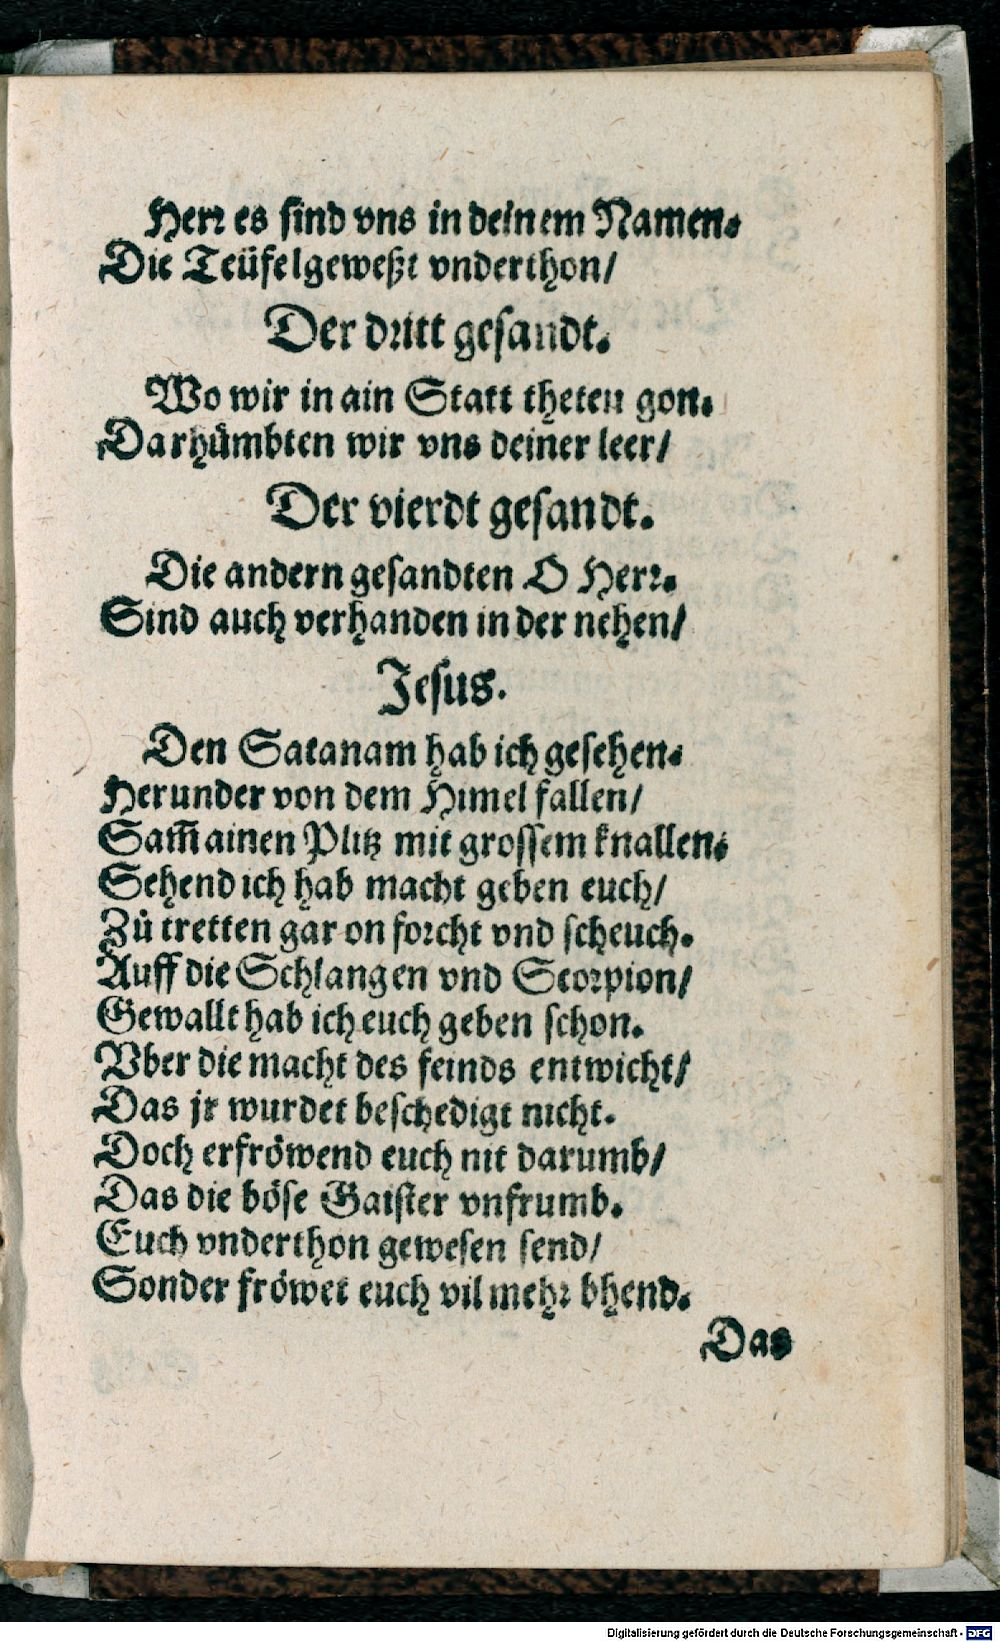 Herr es sind vns in deinem Namen.
Die Teüfel geweßt vnderthon/
Der dritt gesandt.
Wo wir in ain Statt theten gon.
Da rhůmbten wir vns deiner leer/
Der vierdt gesandt.
Die andern gesandten O Herr.
Sind auch verhanden in der nehen/
Jesus.
Den Satanam hab ich gesehen.
Herunder von dem Himel fallen/
Sam̃ ainen Plitz mit grossem knallen.
Sehend ich hab macht geben euch/
Zů tretten gar on forcht vnd scheuch.
Auff die Schlangen vnd Scorpion/
Gewallt hab ich euch geben schon.
Vber die macht des feinds entwicht/
Das jr wurdet beschedigt nicht.
Doch erfröwend euch nit darumb/
Das die böse Gaister vnfrumb.
Euch vnderthon gewesen send/
Sonder fröwet euch vil mehr bhend.
Das
Digitalisierung gefördert durch die Deutsche Forschungsgemeinschaft - DFG